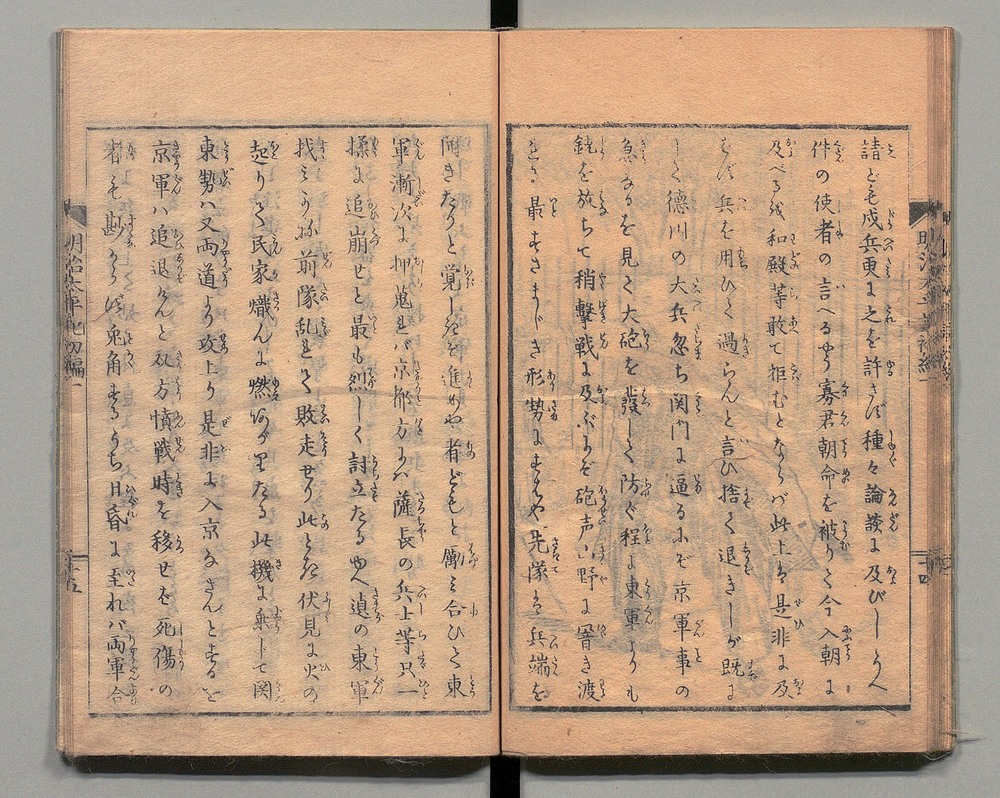 請ども戍兵更に之を許さず種々論談に及びしうへ
件の使者の言へるやう寡君朝命を被りて今入朝に
及べるを和殿等敢て拒むとならバ此上ハ是非に及
ばず兵を用ひて過らんと言ひ捨て退きしが既に
して徳川の大兵忽ち関門に逼るにぞ京軍事の
急なるを見て大砲を發して防ぐ程に東軍よりも
銃を放ちて稍撃戦に及ぶにぞ砲声山野に響き渡
り最すさまじき形勢にすはや先隊は兵端を
開きたりと覚しきを進めや者どもと励ミ合ひて東
軍漸次に押蒐れバ京都方にハ薩長の兵士等只一
揉に追崩せと最も烈しく討立たる両道の東軍
找ミかね前隊乱れて敗走せり此とき伏見に火の
起りて民家熾んに燃あがりたる此機に乗して関
東勢ハ又両道より攻上り是非に入京なさんとするを
京軍ハ追退けんと双方憤戦時を移せば死傷の
者も尠からず兎角するうち日昏に至れバ両軍合
明治太平記初編一
十五
十四